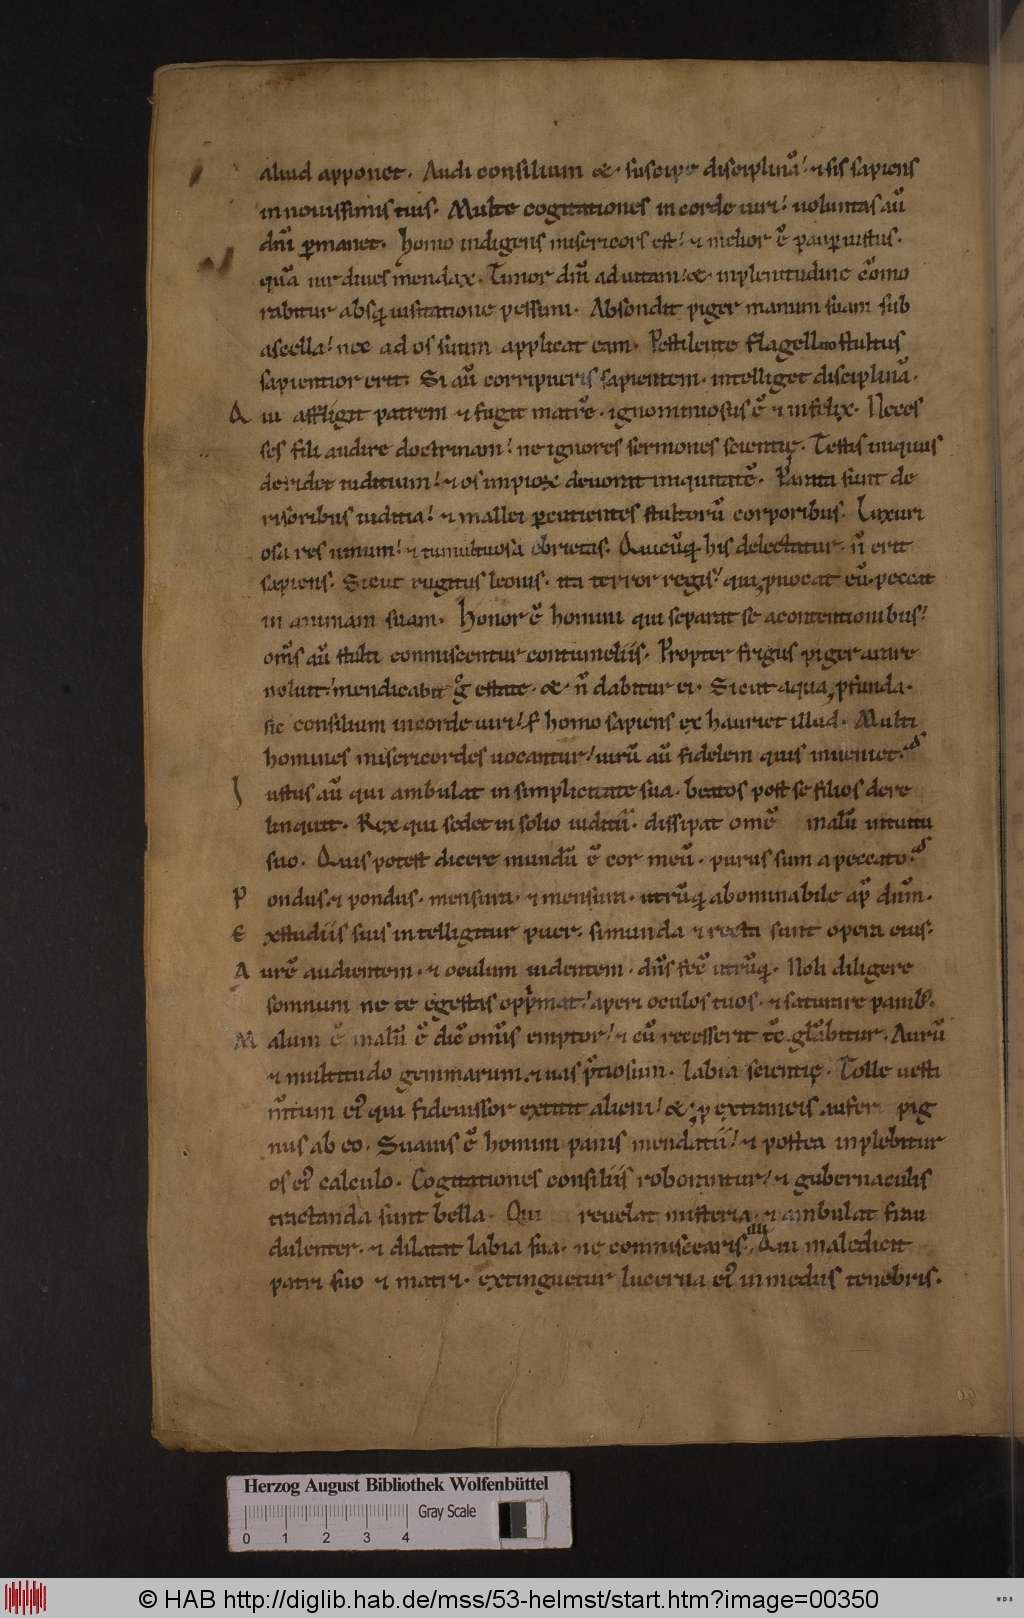 aliud apponet. Audi consilium & suscipe disciplinā! ⁊ sis sapiens
in nouissimis tuis. Multe cogitationes in corde uiri! uoluntas aū
dn̄i ꝑmanet. Homo indigens misericors est! ⁊ melior ē pauꝑ iustus.
quā uir diues mendax. Timor dn̄i ad uitam! & inplenitudine cōmo
rabitur absq; uisitatione pessimi. Abscondit piger manum suam sub
ascella! nec ad os suum applicat eam. Pestilente flagellato stultus
sapientior erit. Si aū corripiueris sapientem. intelliget disciplinā.
Q ui affligit patrem ⁊ fugat matrē. ignominiosus ē ⁊ infelix. Ne ces
ses fili audire doctrinam! ne ignores sermones scientię. Testis iniquus
deridet iuditium! ⁊ os impioꝝ deuorat iniquitatē. Parata sunt de
risoribus iuditia! ⁊ mallei ꝑcutientes stultorū corporibus. Luxuri
osa res uinum! ⁊ tumultuosa ebrietas. Quicūq; his delectatur. n̄ erit
sapiens. Sicut rugitus leonis. ita terror regis! qui ꝓuocat eū. peccat
in animam suam. Honor ē homini qui separat se a contentionibus!
om̄s aū stulti conmiscentur contumeliis. Propter frigus piger arare
noluit! mendicabit gͦ estate. & n̄ dabitur ei. Sicut aqua ꝓfunda.
sic consilium in corde uiri! s; homo sapiens exhauriet illud. Multi
homines misericordes uocantur! uirū aū fidelem quis inueniet.
I ustus aū qui ambulat in simplicitate sua. beatos post se filios dere
linquit. Rex qui sedet in solio iuditii. dissipat omē malū intuitu
suo. Quis potest dicere mundū ē cor meū. purus sum a peccato.
P ondus. ⁊ pondus. mensura. ⁊ mensura. utrūq; abominabile ap̄ dn̄m.
E x studiis suis intelligitur puer. si munda ⁊ recta sunt opera eius.
A urē audientem. ⁊ oculum uidentem. dn̄s fec̄ utrūq;. Noli diligere
somnum ne te egestas opp̄mat! aperi oculos tuos. ⁊ saturare panib;.
M alum ē malū ē dic̄ om̄is emptor! ⁊ cū recesserit tc̄ glābitur. Aurū
⁊ multitudo gemmarum. ⁊ uas p̄tiosum. labia scientię. Tolle uesti
m̄tum ei; qui fideiussor extitit alieni! & ꝓ extraneis aufer pig
nus ab eo. Suauis ē homini panis mendatii! ⁊ postea inplebitur
os ei; calculo. Cogitationes consiliis roborantur! ⁊ gubernaculis
tractanda sunt bella. Qui reuelat misteria. ⁊ ambulat frau
dulenter. ⁊ dilatat labia sua. ne conmiscearis. Qui maledicit
patri suo ⁊ matri. extinguetur lucerna ei; in mediis tenebris.
Herzog August Bibliothek Wolfenbüttel
Gray Scale
0 1 2 3 4
© HAB http://diglib.hab.de/mss/53-helmst/start.htm?image=00350